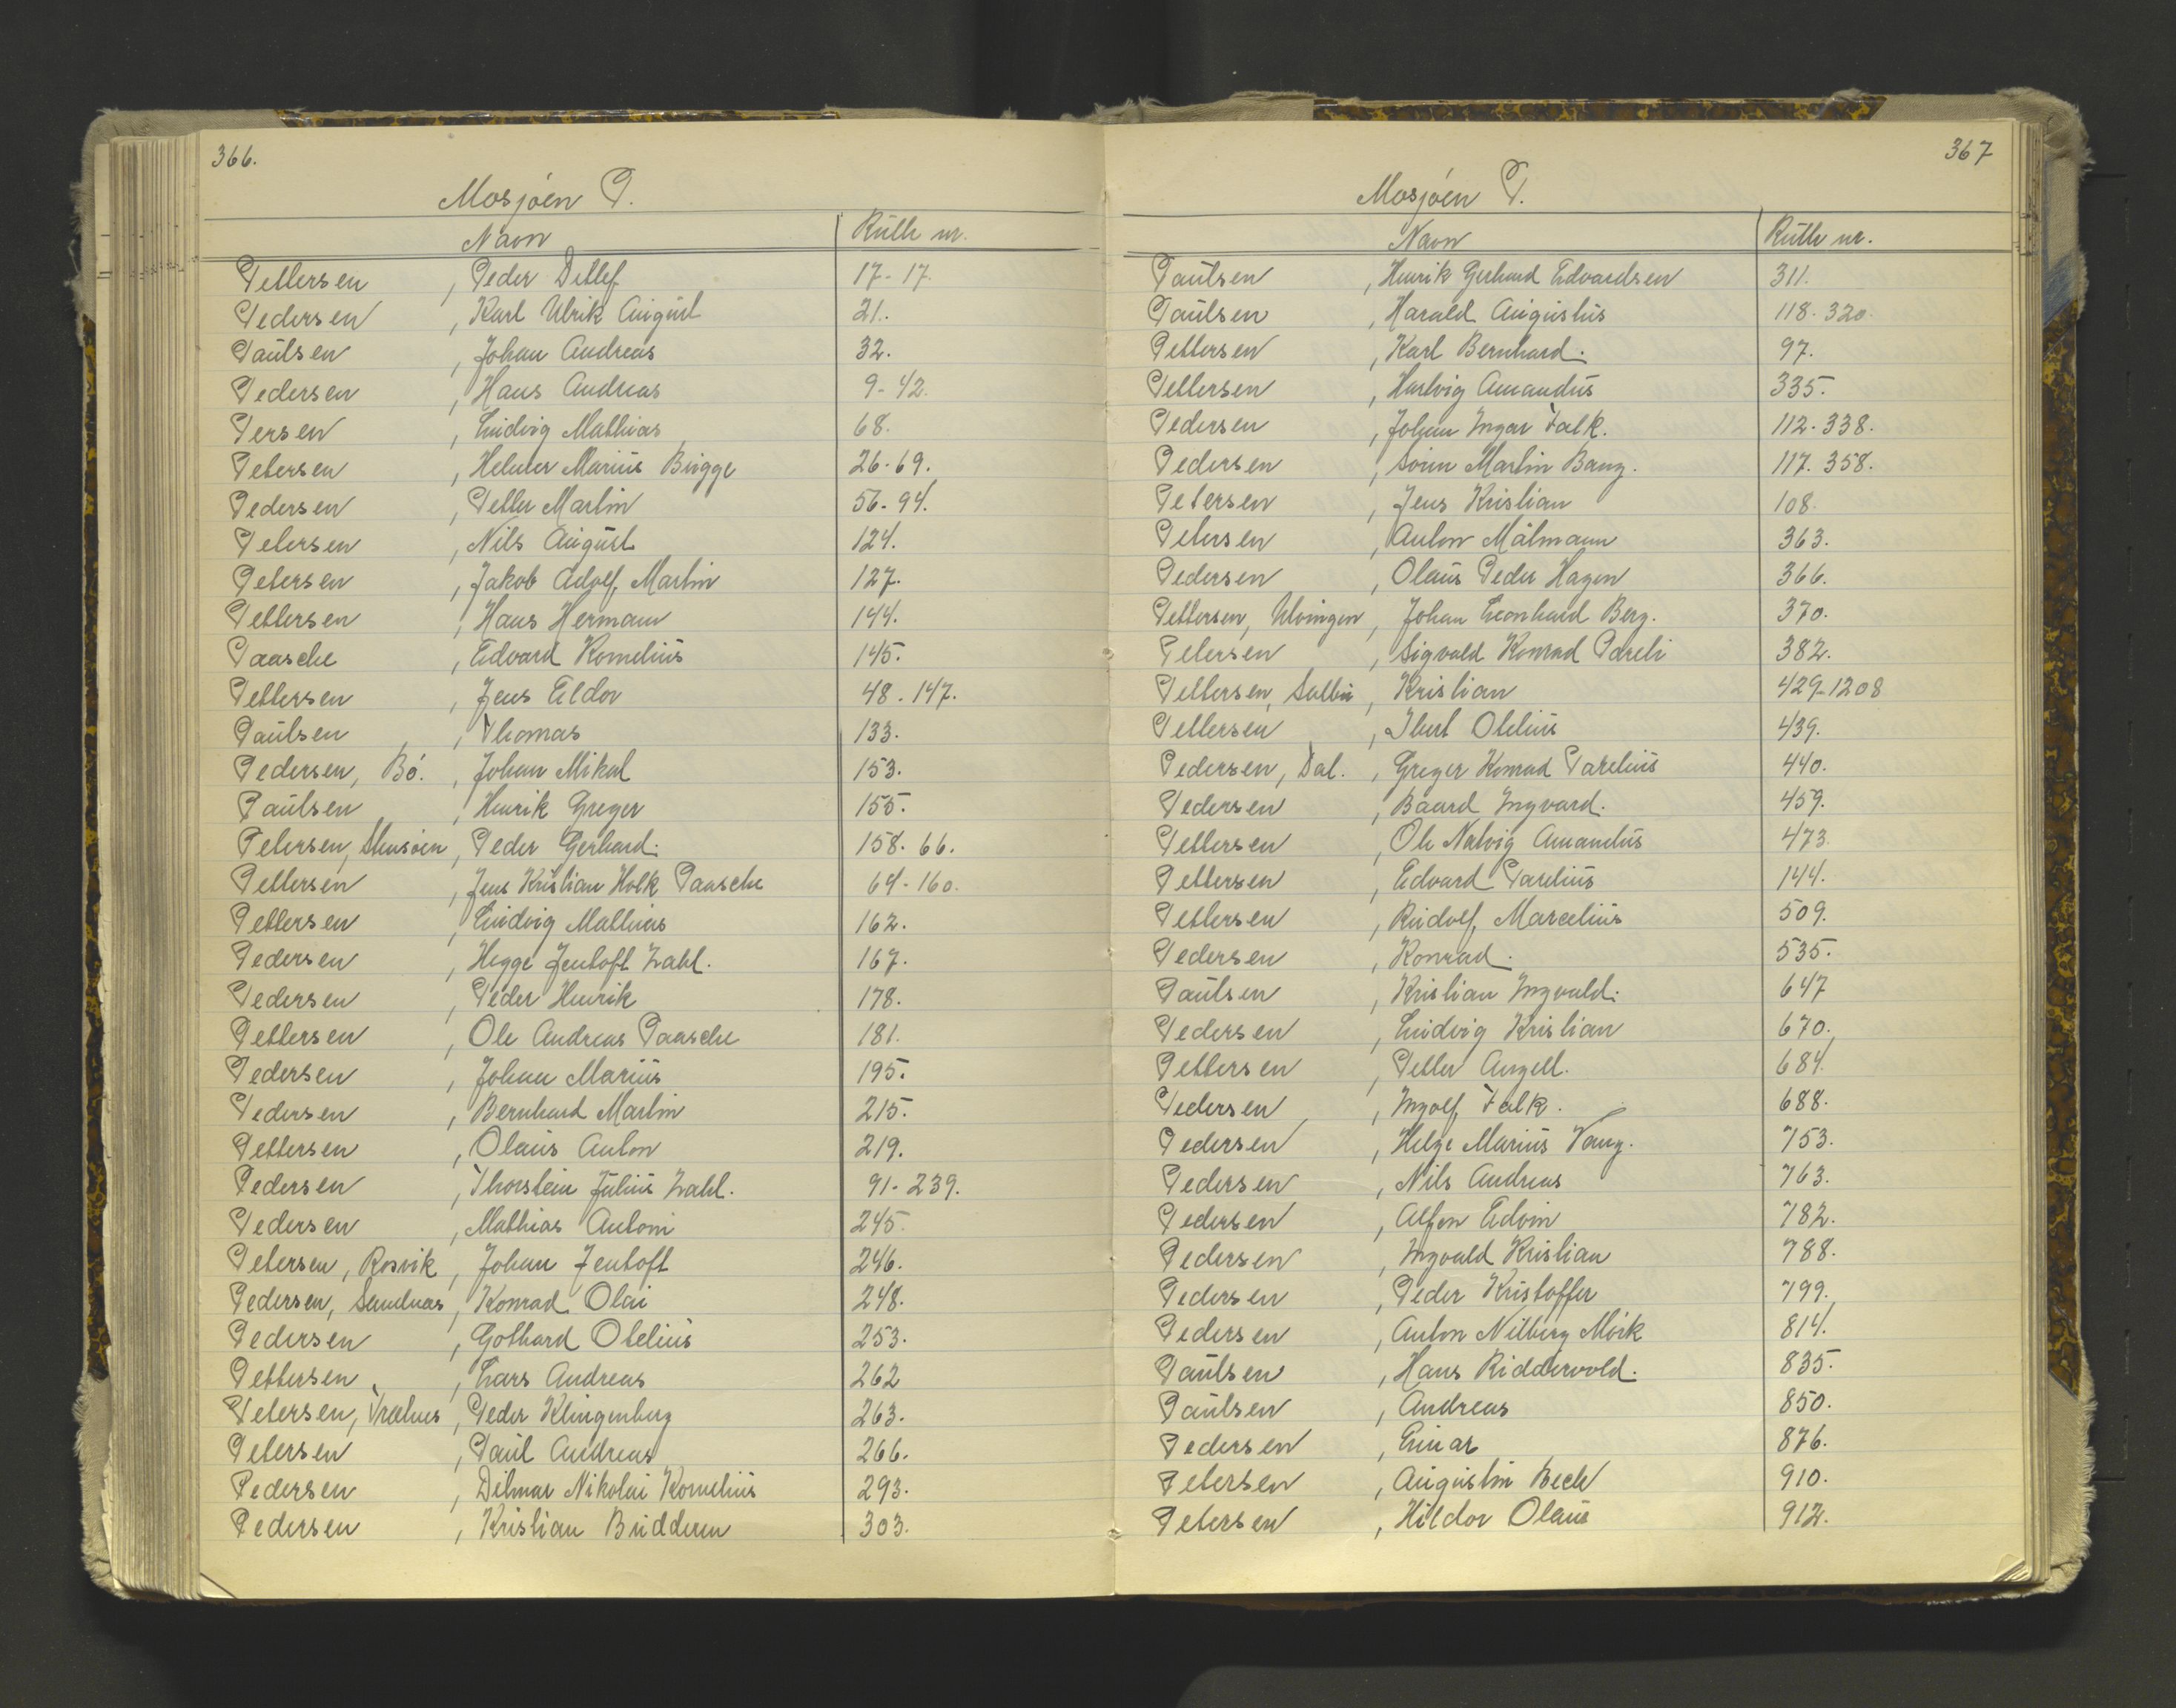 366.
Mosjöen P.
Navn Rulle nr.
Pettersen, Peder Detlef 17-17.
Pedersen, Karl Ulrik August 21.
Paulsen, Johan Andreas 32.
Pedersen, Hans Andreas 9-42.
Persen, Ludvig Mathias 68.
Petersen, Helmer Marius Brygge 26-69.
Pedersen, Petter Martin 56-94.
Petersen, Nils August 124.
Petersen, Jakob Adolf Martin 127.
Pettersen, Hans Hermann 144.
Paasche, Edvard Kornelius 145.
Pettersen, Jens Eldor 48-147.
Paulsen, Thomas 133.
Pedersen, Bö., Johan Mikal 153.
Paulsen, Henrik Greger 155.
Petersen, Peder Gerhard. 158.66.
Pettersen, Jens Kristian Holk Paasche 64-160.
Pettersen, Ludvig Mathias 162.
Pedersen, Hegge Jentoft Zahl. 167.
Pedersen, Peder Henrik 178.
Pettersen, Ole Andreas Paasche 181.
Pedersen, Johan Marius 195.
Pedersen, Bernhard Martin 215.
Pettersen, Olaus Anton 219.
Pedersen, Thorstein Julius Zahl. 91-239.
Pedersen, Mathias Antoni 245.
Petersen, Rosvik, Johan Jentoft 246.
Pedersen, Sandnæs, Konrad Olai 248.
Pedersen, Gothard Otelius 253.
Pettersen, Lars Andreas 262
Petersen, Trælnes, Peder Klingenberg 263.
Petersen, Paul Andreas 266.
Pedersen, Dilmar Nikolai Kornelius 293.
Pedersen, Kristian Budderen 303.
367
Mosjöen P.
Navn Rulle nr.
Paulsen, Henrik Gerhard Edvardsen 311.
Paulsen, Harald Augustus 118.320.
Pettersen, Karl Bernhard. 97.
Pettersen, Hartvig Amandus 335.
Pedersen, Johan Ingar Falk. 112-338.
Pedersen, Sören Martin Bang. 117.358.
Petersen, Jens Kristian 108.
Petersen, Anton Malmann 363.
Pedersen, Olaus Peder Hagen 366.
Pettersen, Ulvingen, Johan Leonhard Berg. 370.
Petersen, Sigvald Konrad Pareli 382.
Pettersen, Kristian 429-1208
Pettersen, Otelius 439.
Pedersen, Dal., Greger Konrad Parelius 440.
Pedersen, Baard Ingvard. 459.
Pettersen, Ole Natvig Amandus 473.
Pettersen, Edvard Parelius 144.
Pettersen, Rudolf Marcelius 509.
Pedersen, Konrad. 535.
Paulsen, Kristian Ingvald. 647
Pedersen, Ludvig Kristian 670.
Pettersen, Petter Angell. 684.
Pedersen, Ingolf Falk. 688.
Pedersen, Helge Marius Vang. 753.
Pedersen, Nils Andreas 763.
Pedersen, Alfon Edvin 782.
Pedersen, Ingvald Kristian 788.
Pedersen, Peder Kristoffer 799.
Pedersen, Anton Nilberg Mörk 814.
Paulsen, Hans Riddervold. 835.
Paulsen, Andreas 850.
Pedersen, Einar 876.
Petersen, Augustin Bech 910.
Petersen, Hildor Olaus 912.